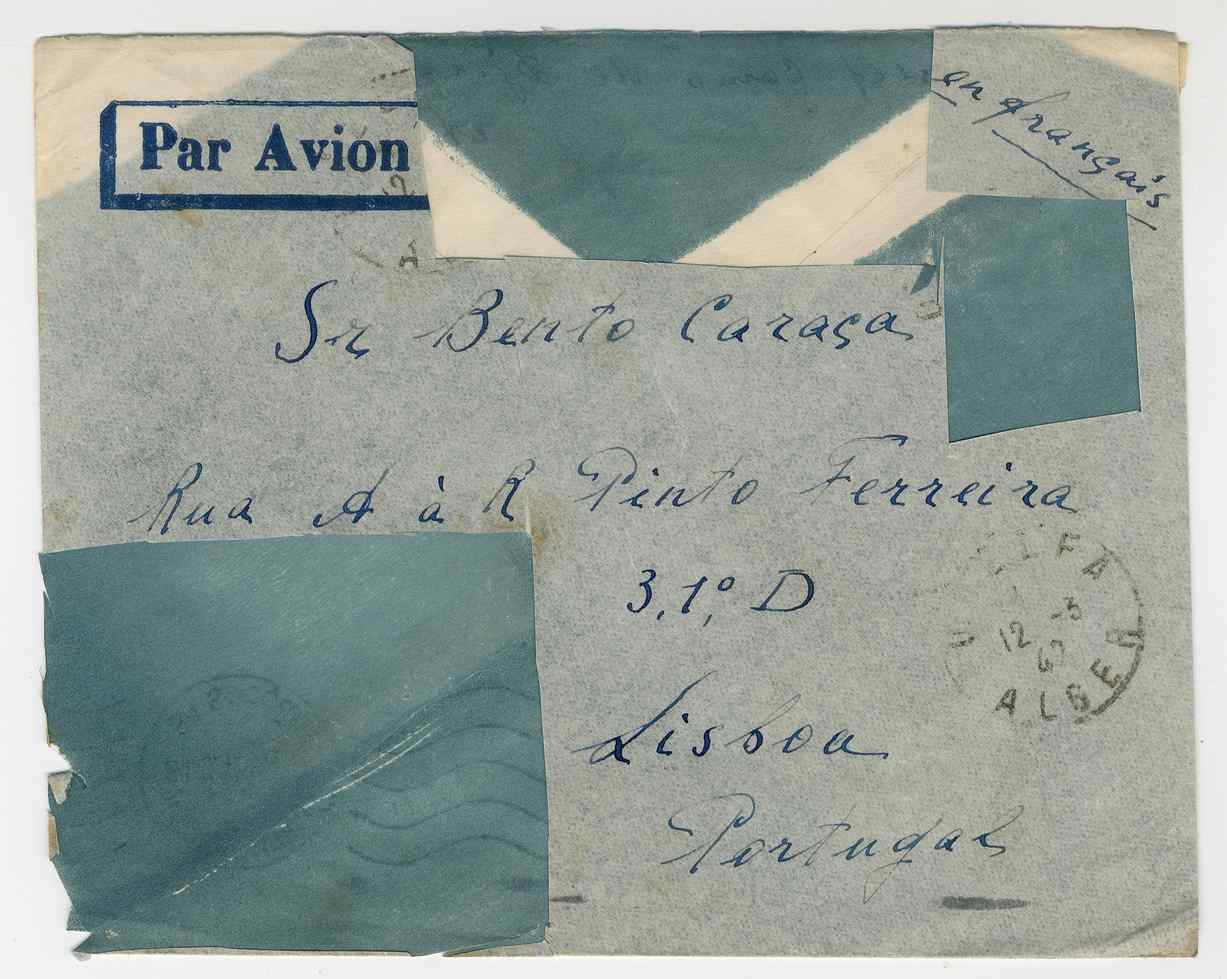 Par Avion
en français
Sr Bento Caraça
Rua A à R Pinto Ferreira
3,1º, D
Lisboa
Portugal
12 -5
47
ALGER